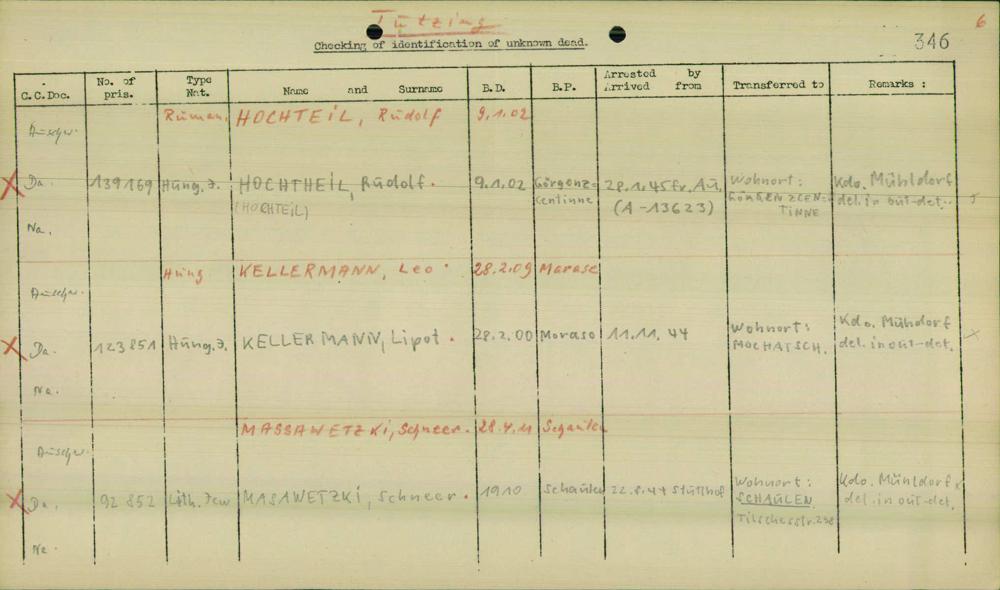 Tutzing
6
Checking of identification of unknown dead.
346
C.C.Doc. No. of pris. Type Nat. Name and Surname B.D. B.P. Arrested by Arrived from Transferred to Remarks :
Ruman. HOCHTEIL, Rudolf 9.1.02
Auschw.
Da. 139169 Hung. J. HOCHTHEIL, Rudolf. 9.1.02 28.1.45 fr. Au. Wohnort: Kdo. Mühldorf
(HOCHTEIL) (A-13623) del. in out-det.
TINNE
Na.
Hung KELLERMANN, Leo 28.2.09 Marasc
Auschw.
Da. 123851 Hung. J. KELLERMANN, Lipot. 28.2.00 Moraso 11.11.44 Wohnort: Kdo. Mühdorf
MOCHATSCH. del. in out-det.
Na.
MASSAWETZKi, Schneer. 28.4.11 Schaulen
Auschw.
Da. 92852 Lith. Jew MASAWETZKi, Schneer. 1910 Schaulen 22.8.44 Stutthof Wohnort: Kdo. Mühldorf
SCHAULEN del. in out-det.
Na.